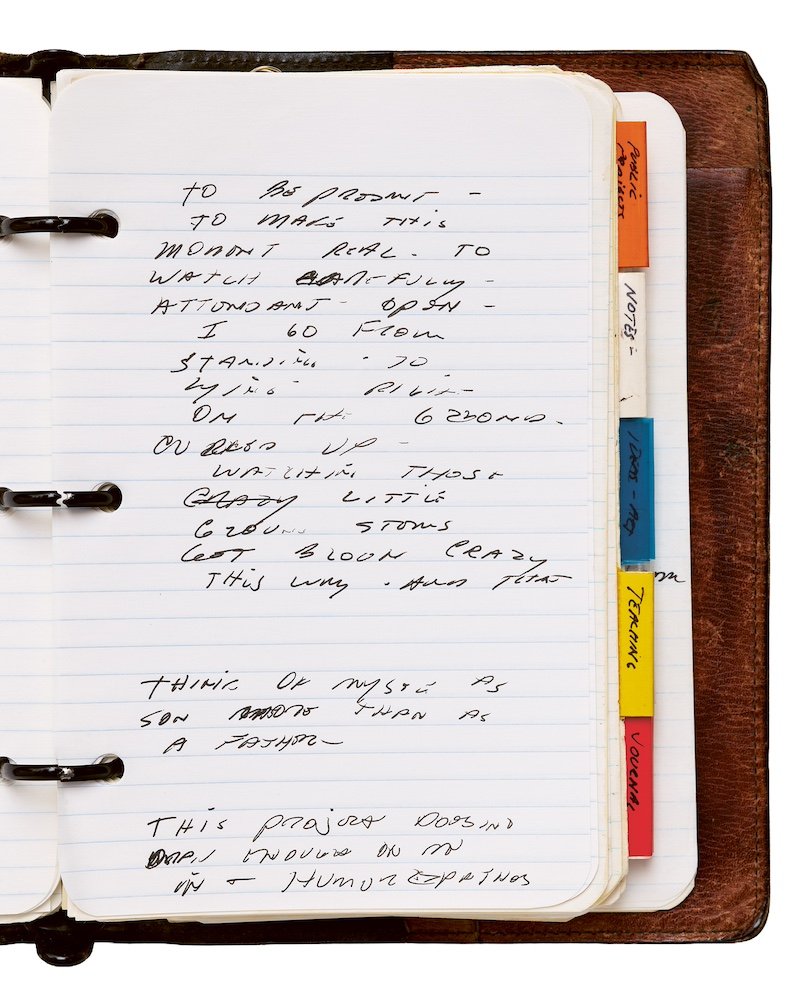 TO BE PRESENT -
TO MAKE THIS
MOMENT REAL. TO
WATCH CAREFULLY -
ATTENDANT - OPEN -
I GO FROM
STANDING TO
LYING
ON THE GROUND.
UP -
WATCHING THOSE
CRAZY LITTLE
GROUND STORMS
GET BLOWN CRAZY
THIS WAY - AND THAT
THINK OF MYSELF AS
SON MORE THAN AS
A FATHER -
THIS PROJECT DOES NOT
ENOUGH ON MY
HUMOR
PUBLIC
PROJECTS
NOTES -
IDEAS -
TEACHING
JOURNAL